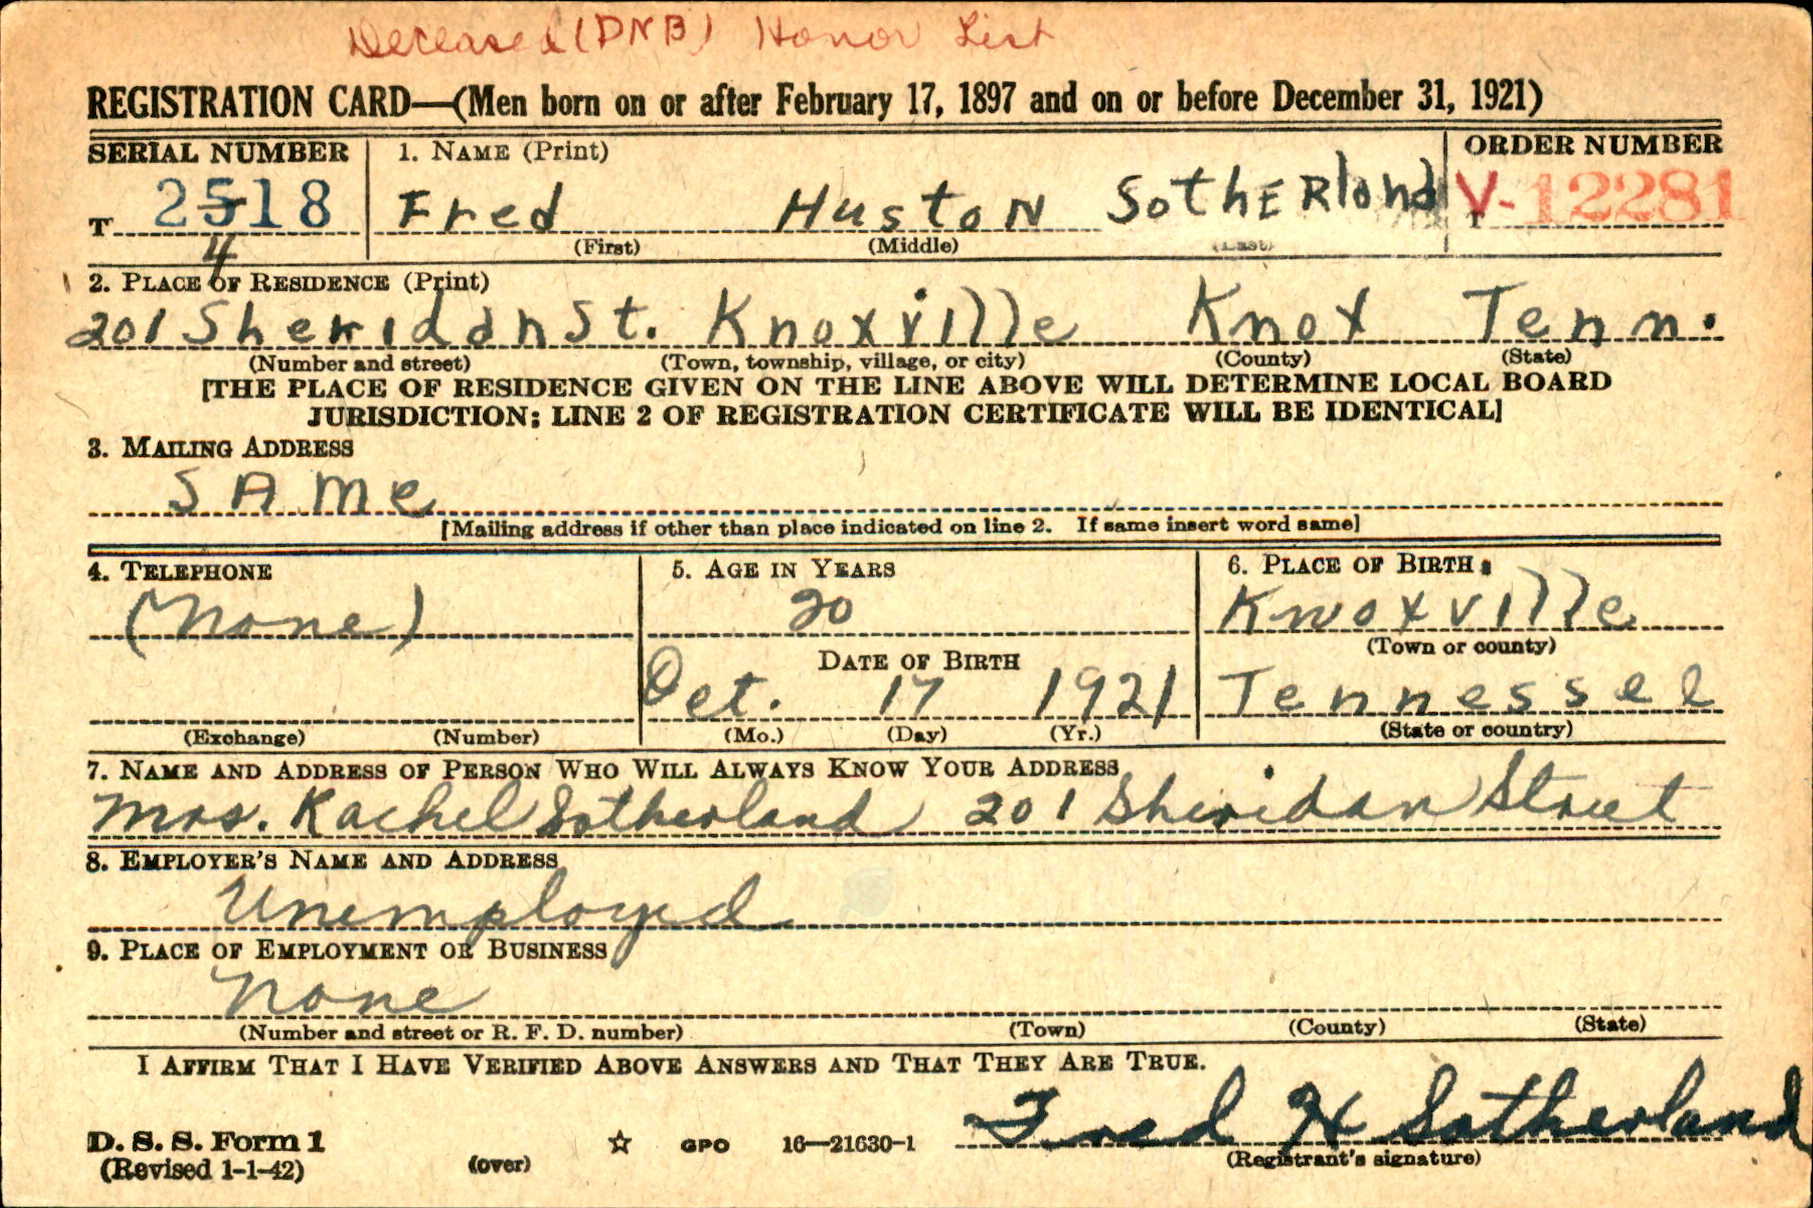 Deceased (DNB) Honor List
REGISTRATION CARD—(Men born on or after February 17, 1897 and on or before December 31, 1921)
SERIAL NUMBER 1. NAME (Print) ORDER NUMBER
T 2518 Fred Huston Sotherland V-12281
4 (First) (Middle) (Last) T
2. PLACE OF RESIDENCE (Print)
201 Sheridan St. Knoxville Knox Tenn.
(Number and street) (Town, township, village, or city) (County) (State)
[THE PLACE OF RESIDENCE GIVEN ON THE LINE ABOVE WILL DETERMINE LOCAL BOARD
JURISDICTION; LINE 2 OF REGISTRATION CERTIFICATE WILL BE IDENTICAL]
3. MAILING ADDRESS
SAme
[Mailing address if other than place indicated on line 2. If same insert word same]
4. TELEPHONE 5. AGE IN YEARS 6. PLACE OF BIRTH
(None) 20 Knoxville
(Town or county)
DATE OF BIRTH
Oct. 17 1921 Tennessee
(Exchange) (Number) (Mo.) (Day) (Yr.) (State or country)
7. NAME AND ADDRESS OF PERSON WHO WILL ALWAYS KNOW YOUR ADDRESS
Mrs. Rachel Sotherland 201 Sheridan Street
8. EMPLOYER'S NAME AND ADDRESS
Unemployed
9. PLACE OF EMPLOYMENT OR BUSINESS
None
(Number and street or R. F. D. number) (Town) (County) (State)
I AFFIRM THAT I HAVE VERIFIED ABOVE ANSWERS AND THAT THEY ARE TRUE.
Fred H Sotherland
D. S. S. Form 1 ☆ GPO 16—21630-1
(Revised 1-1-42) (over) (Registrant's signature)